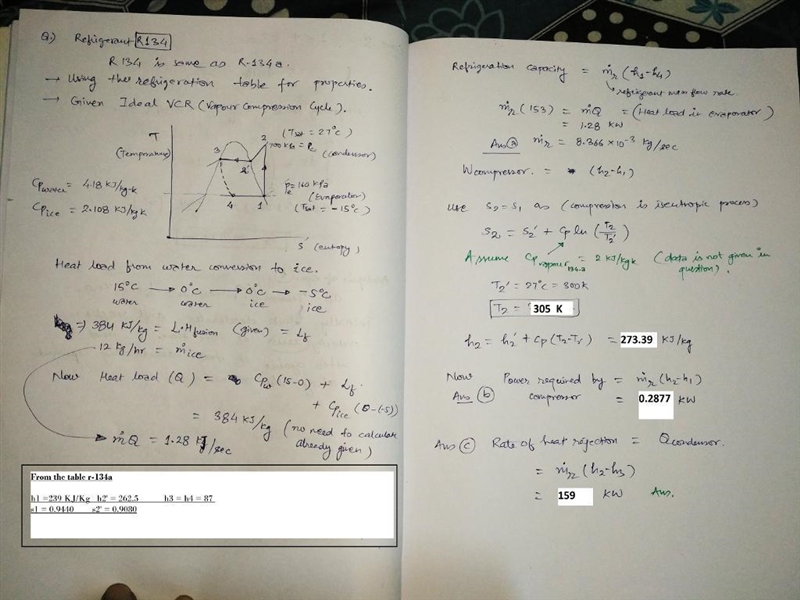 Q.) Refrigerant R134
R 134 is same as R-134a.
→ Using the refrigeration table for properties.
→ Given Ideal VCR (Vapour Compression Cycle).
T
(Temperature)
3
2
2'
4
1
(Tsat = 27°C)
700 kPa = Pc
(condensor)
(Evaporator)
(Tsat = -15°C)
S (entropy)
Cpwater = 4.18 KJ/kg-k
Cpice = 2.108 KJ/kg k
Heat load from water conversion to ice.
15°C → 0°C → 0°C → -5°C
water water ice ice
⇒ 384 KJ/kg = L·Hfusion (given) = Lf
12 kg/hr = ṁice
Now Heat load (Q) = Cpw (15-0) + Lf
+ Cpice (0-(-5))
= 384 KJ/kg (no need to calculate
already given)
ṁQ = 1.28 KJ/sec
From the table r-134a
h1 =239 KJ/Kg h2' = 262.5 h3 = h4 = 87
s1 = 0.9440 s2' = 0.9080
Refrigeration capacity = ṁr (h1-h4)
refrigerant mass flow rate.
ṁr (153) = ṁQ = (Heat load in evaporator)
= 1.28 KW
Ans (a) ṁr = 8.366 ×10⁻³ kg/sec
Wcompressor = (h2-h1)
Use S2 = S1 as (compression is isentropic process)
S2 = S2' + Cp ln (T2/T2')
Assume Cpvapour = 2 KJ/kgk (data is not given in
question).
T2' = 27°C = 300K
T2 = 305 K
h2 = h2' + Cp (T2-T2') = 273.39 KJ/kg
Now Power required by = ṁr (h2-h1)
Ans (b) compressor = 0.2877 KW
Ans (c) Rate of heat rejection = Qcondensor.
= ṁr (h2-h3)
= 159 KW Ans.